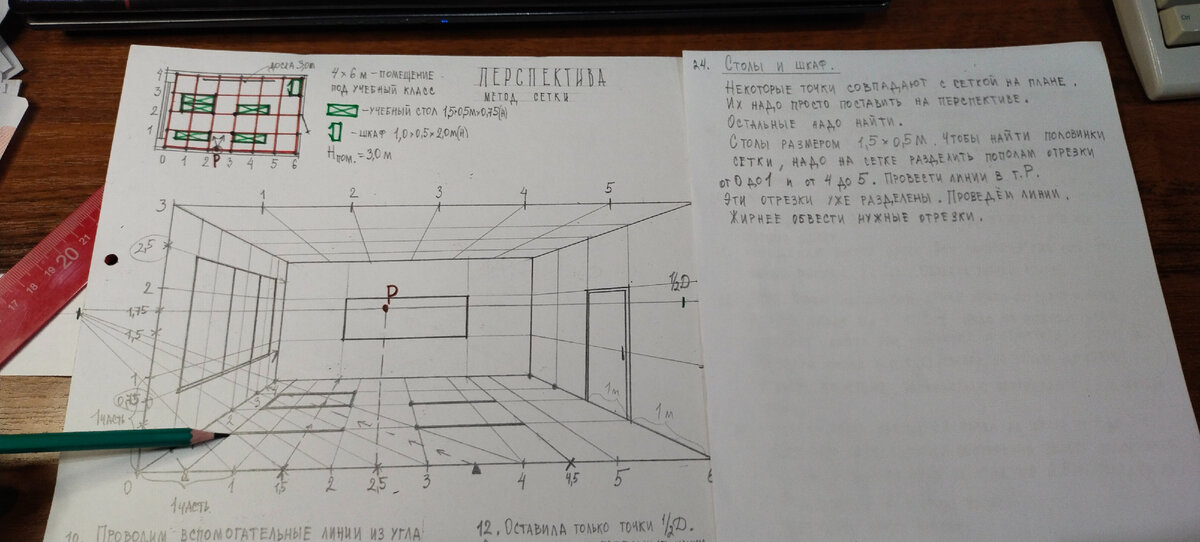 ДОСКА 3,0m
4×6 м – ПОМЕЩЕНИЕ
ПОД УЧЕБНЫЙ КЛАСС
– УЧЕБНЫЙ СТОЛ 1,5×0,5м×0,75(h)
– ШКАФ 1,0×0,5×2,0м(H)
Hпом. = 3,0 м
4
3
2
1
0 1 2 3 4 5 6
P
ПЕРСПЕКТИВА
МЕТОД СЕТКИ
3 1 2 3 4 5
2,5
2
1,75
1,5
1
0,75
P
½D
1м
1м
1 ЧАСТЬ
2 3
0 1 1,5 2 2,5 3 4 4,5 5 6
1 ЧАСТЬ
ПРОВОДИМ ВСПОМОГАТЕЛЬНЫЕ ЛИНИИ ИЗ УГЛА
12. ОСТАВИЛА ТОЛЬКО ТОЧКИ ½D.
24. СТОЛЫ И ШКАФ.
НЕКОТОРЫЕ ТОЧКИ СОВПАДАЮТ С СЕТКОЙ НА ПЛАНЕ.
ИХ НАДО ПРОСТО ПОСТАВИТЬ НА ПЕРСПЕКТИВЕ.
ОСТАЛЬНЫЕ НАДО НАЙТИ.
СТОЛЫ РАЗМЕРОМ 1,5×0,5 М. ЧТОБЫ НАЙТИ ПОЛОВИНКИ
СЕТКИ, НАДО НА СЕТКЕ РАЗДЕЛИТЬ ПОПОЛАМ ОТРЕЗКИ
ОТ 0 ДО 1 И ОТ 4 ДО 5. ПРОВЕСТИ ЛИНИИ В Т.P.
ЭТИ ОТРЕЗКИ УЖЕ РАЗДЕЛЕНЫ. ПРОВЕДЁМ ЛИНИИ.
ЖИРНЕЕ ОБВЕСТИ НУЖНЫЕ ОТРЕЗКИ.
17 18 19 20 21